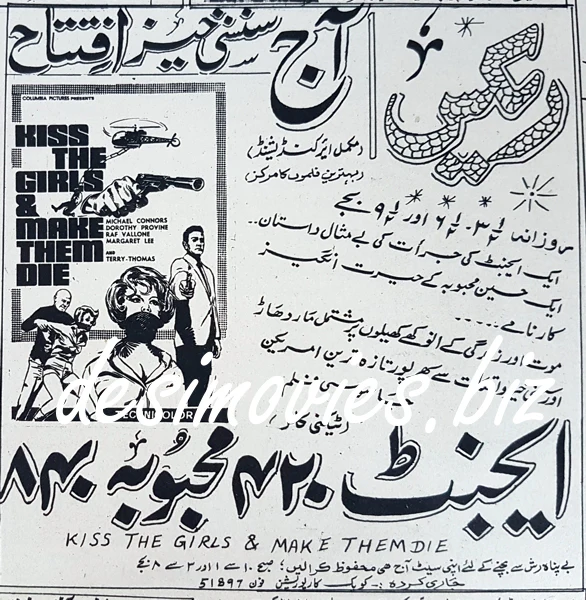 آج
سنسنی خیز افتتاح
ریکس
(مکمل ایرکنڈیشنڈ)
(بہترین فلموں کا مرکز)
روزانہ ½۳- ½۶ اور ½۹ بجے
ایک ایجنٹ کی جرأت کی بے مثال داستان..
ایک حسین محبوبہ کے حیرت انگیز
کارنامے.....
موت اور زندگی کے انوکھے کھیلوں پر مشتمل مار دھاڑ
سے بھرپور تازہ ترین امریکن
COLUMBIA PICTURES PRESENTS
KISS
THE
GIRLS
&
MAKE
THEM
DIE
MICHAEL CONNORS
DOROTHY PROVINE
RAF VALLONE
MARGARET LEE
AND
TERRY-THOMAS
TECHNICOLOR
desimovies.biz
ایجنٹ ۴۲۰ محبوبہ ۸۴۰
KISS THE GIRLS & MAKE THEM DIE
بے پناہ رش سے بچنے کے لئے اپنی سیٹ آج ہی محفوظ کرالیں؛ صبح ۱۰ سے ۱ اور ۲ سے ۸ بجے
جاری کردہ:- کوپک کارپوریشن فون 51897